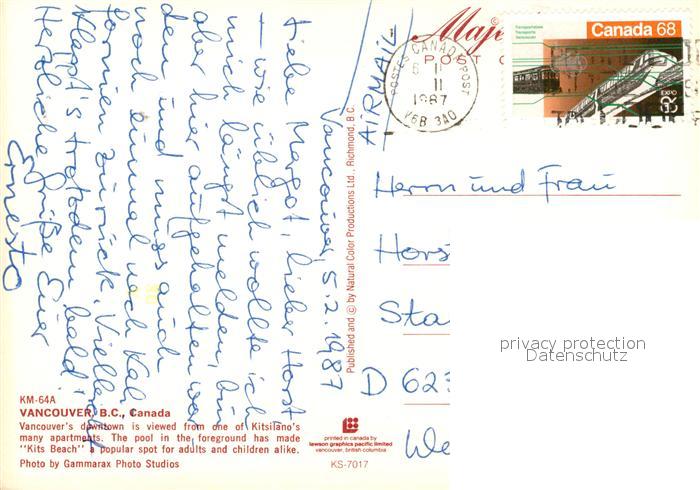 Vancouver, 5.2.1987
Liebe Margot, lieber Horst
– wie üblich wollte ich
mich längst melden, bin
aber hier aufgehalten wor-
den und muss auch
noch einmal nach Kali-
fornien zurück. Vielleicht
klappt's trotzdem bald!
Herzliche Grüße Euer
Ernesto
AIRMAIL
POST C
CANADA
POSTES
POST
II
1987
V6B 3A0
Transportation
Transports
Vancouver
Canada 68
EXPO 86
Herrn und Frau
Hors
Sta
D 623
We
privacy protection
Datenschutz
Published and © by Natural Color Productions Ltd., Richmond, B.C.
KM-64A
VANCOUVER, B.C., Canada
Vancouver's downtown is viewed from one of Kitsilano's
many apartments. The pool in the foreground has made
"Kits Beach" a popular spot for adults and children alike.
Photo by Gammarax Photo Studios
printed in canada by
lawson graphics pacific limited
vancouver, british columbia
KS-7017